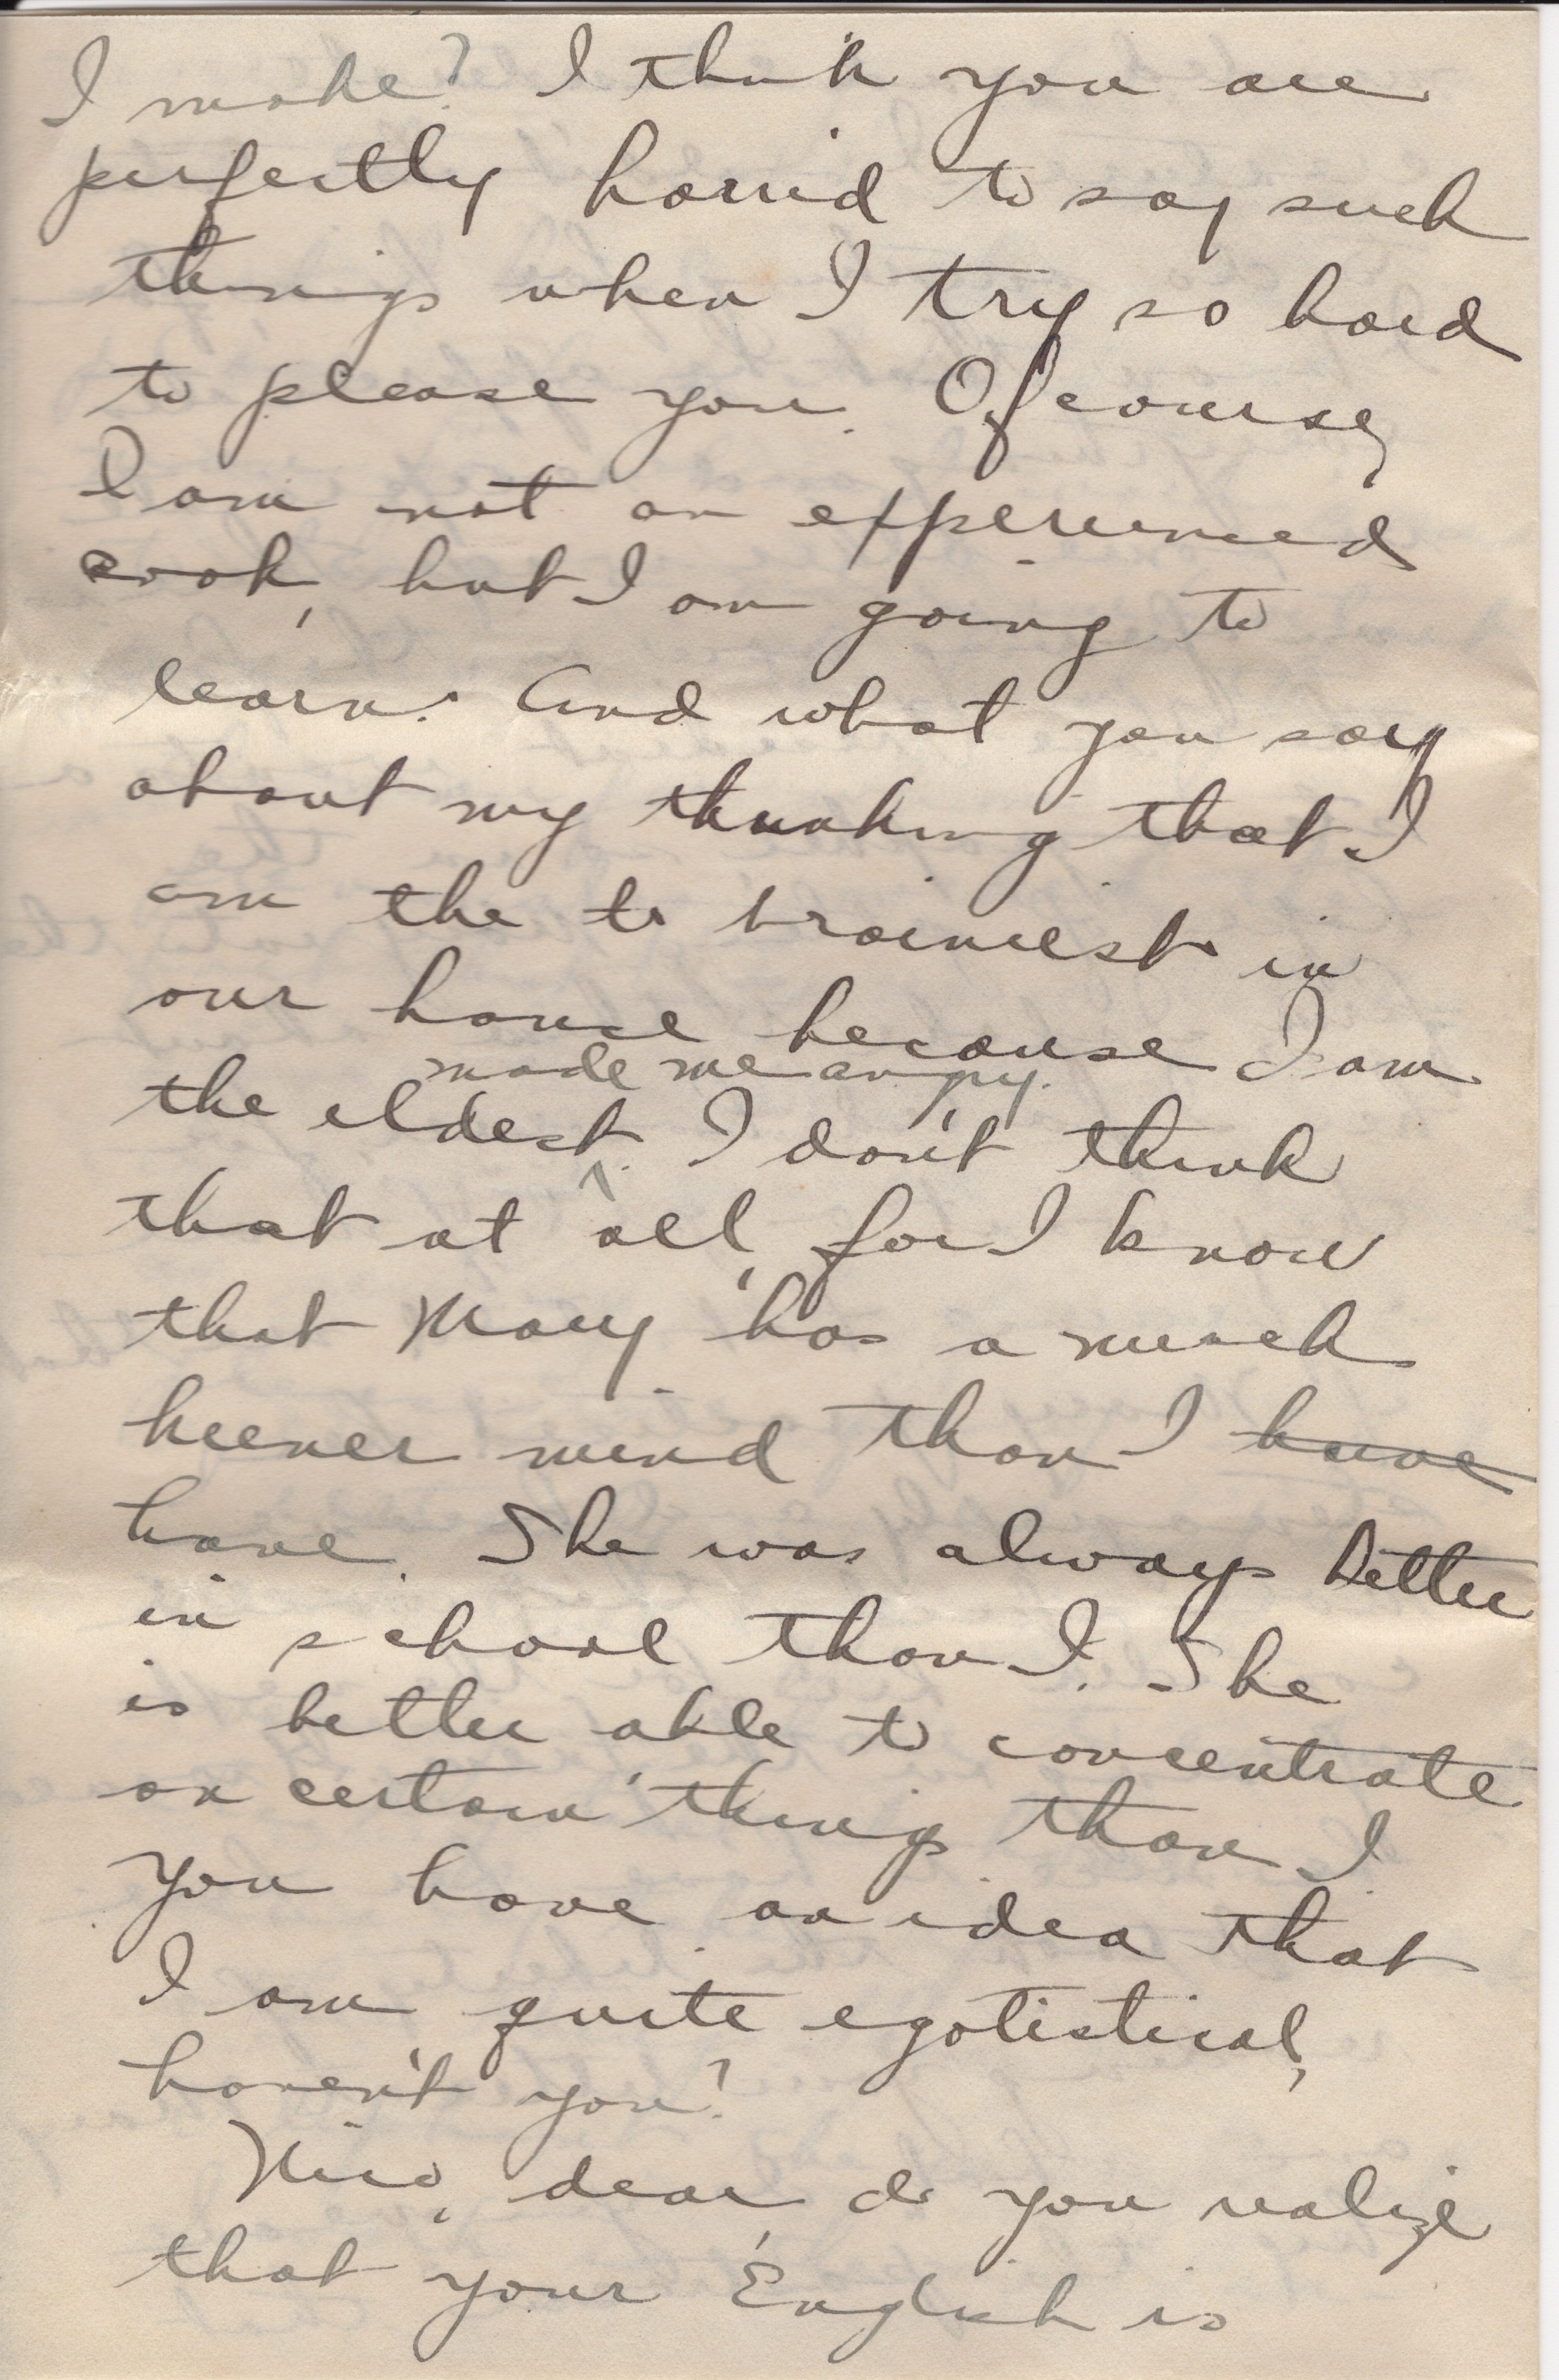 I make? I think you are
perfectly horrid to say such
things when I try so hard
to please you. Of course,
I am not an experienced
cook, but I am going to
learn. And what you say
about my thinking that I
am the to brainiest in
our house because I am
made me angry.
the eldest. I don't think
that at all, for I know
that Mary has a much
keener mind than I have
have. She was always better
in school than I. She
is better able to concentrate
on certain things than I.
You have an idea that
I am quite egotistical,
haven't you?
Nico, dear, do you realize
that your English is